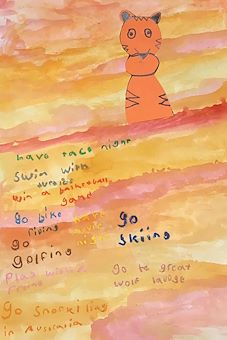 have taco night
Swim with
turtles
win a basketball
game
go bike
riding
have
movie
night
go
Skiing
go
golfing
Play with
friends
go to great
wolf lavdge
go Snorkiling
in Australia